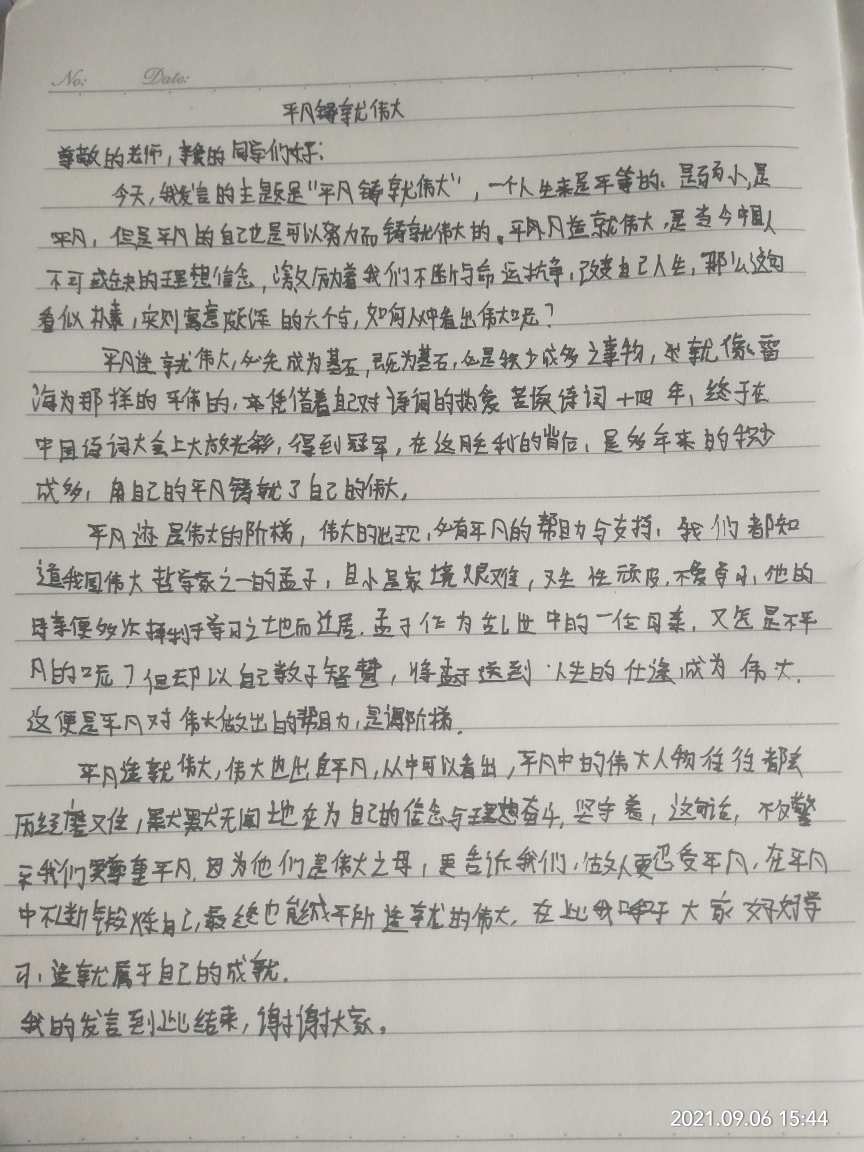 No:  Date:
平凡铸就伟大
尊敬的老师，亲爱的同学们大家好：
今天，我发言的主题是“平凡铸就伟大”，一个人生来是平等的、是弱小，是
平凡，但是平凡的自己也是可以努力而铸就伟大的。平凡造就伟大，是当今中国人
不可或缺的理想信念，激励着我们不断与命运抗争，改变自己人生，那么这句
看似朴素，实则寓意颇深的六个字，如何从中看出伟大呢？
平凡造就伟大，必先成为基石，既为基石，必是积少成多之事物，就像雷
海为那样的平伟的，凭借着自己对诗词的热爱苦读诗词十四年，终于在
中国诗词大会上大放光彩，得到冠军，在这胜利的背后，是多年来的积少
成多，用自己的平凡铸就了自己的伟大，
平凡还是伟大的阶梯，伟大的出现，必有平凡的帮助与支持，我们都知
道我国伟大哲学家之一的孟子，自小是家境艰难，又生性顽皮，不爱学习，他的
母亲便多次择利于学习之地而迁居，孟子作为乱世中的一位母亲，又怎是不平
凡的呢？但却以自己教子智慧，将孟子送到人生的仕途，成为伟大，
这便是平凡对伟大做出的帮助，是谓阶梯。
平凡造就伟大，伟大也出自平凡，从中可以看出，平凡中的伟大人物往往都会
历经磨难，默默无闻地在为自己的信念与理想奋斗，坚守着，这句话，不仅警
示我们要尊重平凡，因为他们是伟大之母，更告诉我们，做人更忍受平凡，在平凡
中不断锻炼自己，最终也能成平所造就的伟大，在此我呼吁大家好好学
习，造就属于自己的成就。
我的发言到此结束，谢谢大家。
2021.09.06 15:44